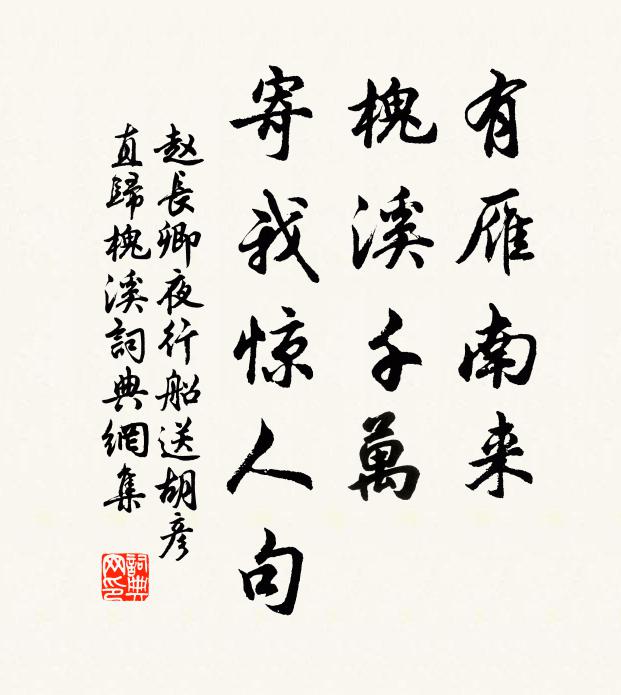 有雁南来
槐溪千萬
寄我惊人句
赵長卿夜行船送胡彦
直歸槐溪詞典網集
詞典
网印